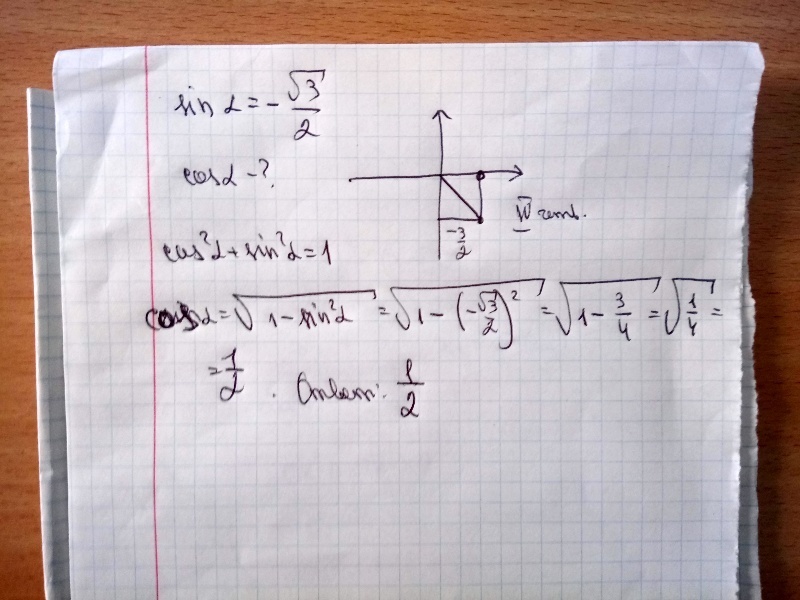 sin α = - √3/2
cos α - ?
-3/2
IV четв.
cos²α + sin²α = 1
cos α = √(1 - sin²α) = √(1 - (-√3/2)²) = √(1 - 3/4) = √(1/4) =
= 1/2 . Ответ: 1/2